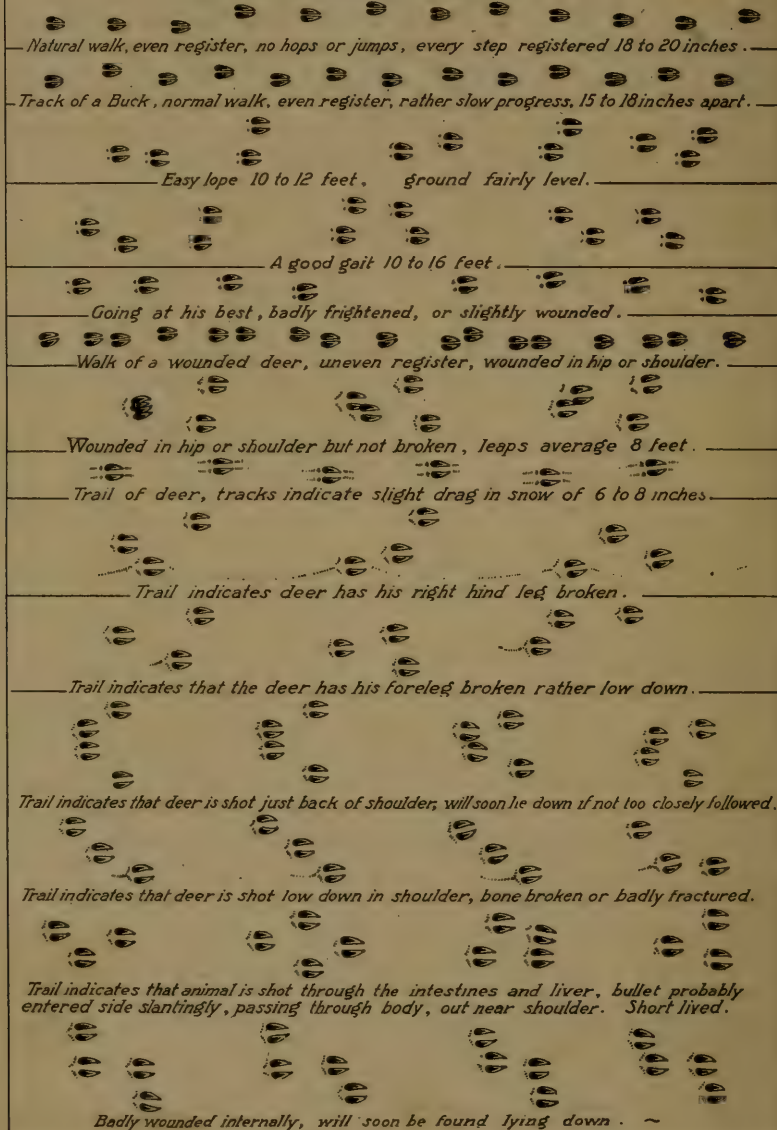 Natural walk, even register, no hops or jumps, every step registered 18 to 20 inches.
Track of a Buck, normal walk, even register, rather slow progress, 15 to 18 inches apart.
Easy lope 10 to 12 feet, ground fairly level.
A good gait 10 to 16 feet.
Going at his best, badly frightened, or slightly wounded.
Walk of a wounded deer, uneven register, wounded in hip or shoulder.
Wounded in hip or shoulder but not broken, leaps average 8 feet.
Trail of deer, tracks indicate slight drag in snow of 6 to 8 inches.
Trail indicates deer has his right hind leg broken.
Trail indicates that the deer has his foreleg broken rather low down.
Trail indicates that deer is shot just back of shoulder, will soon lie down if not too closely followed.
Trail indicates that deer is shot low down in shoulder, bone broken or badly fractured.
Trail indicates that animal is shot through the intestines and liver, bullet probably
entered side slantingly, passing through body, out near shoulder. Short lived.
Badly wounded internally, will soon be found lying down. ~